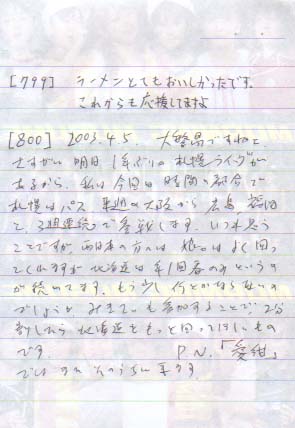 [799] ラーメンとてもおいしかったです。
これからも応援してますよ
[800] 2003.4.5. 大繁昌ですねと
さすがに明日1年ぶりの札幌ライヴが
あるから。私は今回は時間の都合で
札幌はパス 来週の大阪から広島
と、3週連続で参戦します。いつも思う
ことですが、西日本の方へは よく回っ
てくれますが北海道は年1回春のみというの
が続いてます。もう少し何とかならないの
でしょうか。
北海道ももっと回ってほしいもの
です。 P.N.「愛紺」
では またそのうちに来ます